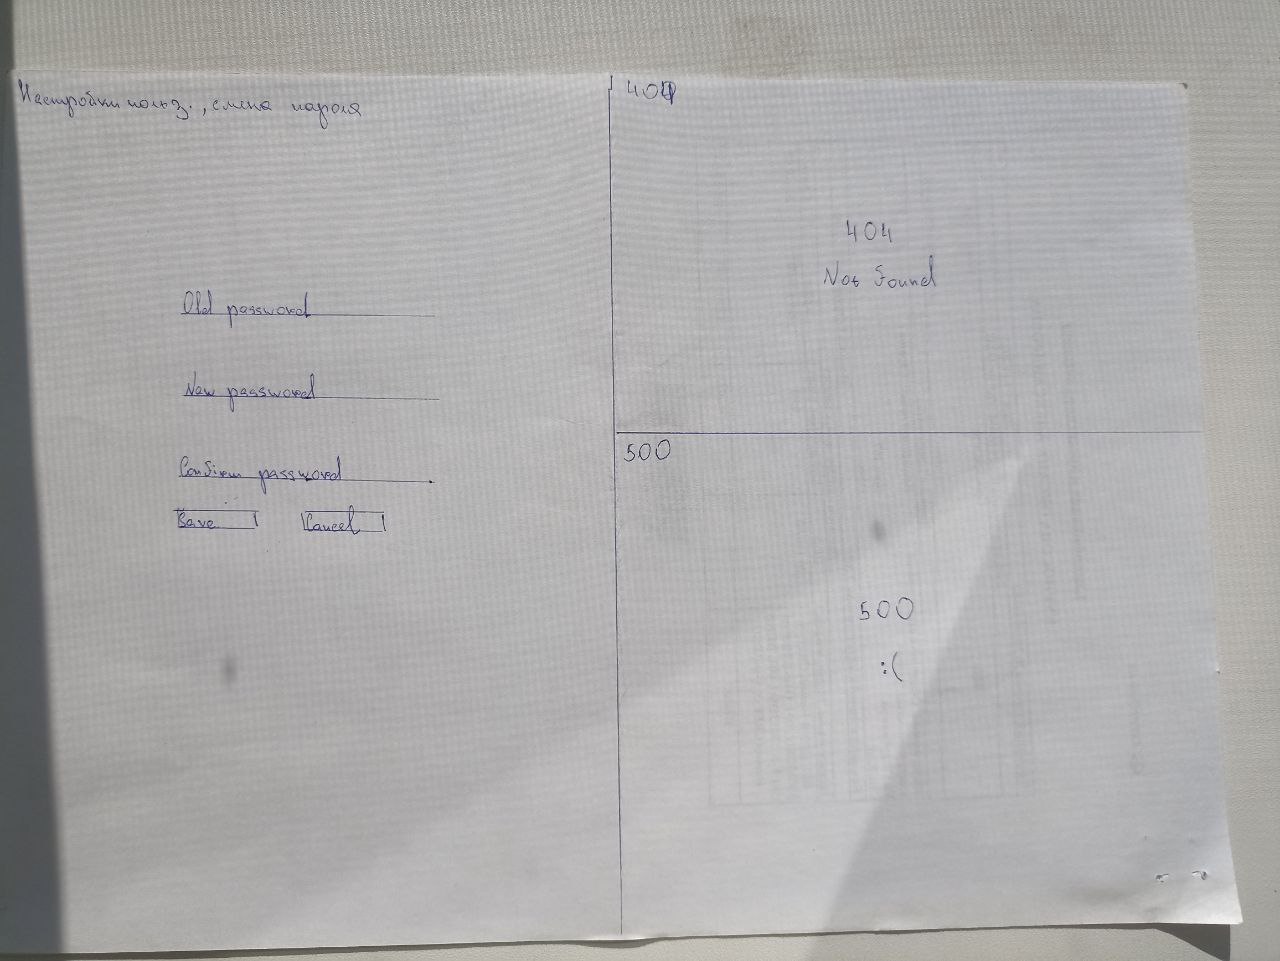 Настройки польз., смена пароля
Old password
New password
Confirm password
Save
Cancel
404
404
Not Found
500
500
:(